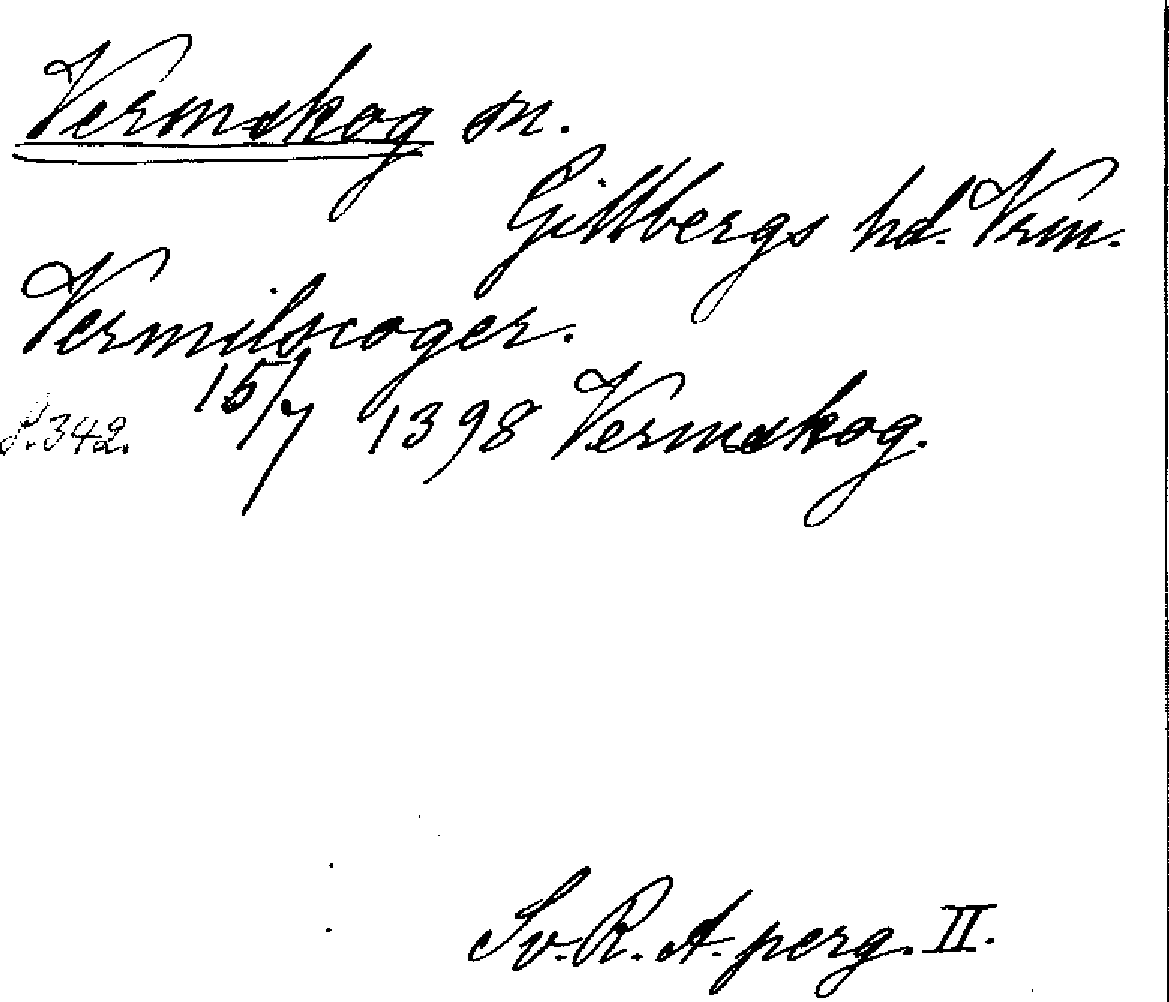 Vermskog sn.
Gillbergs hd. Vrm.
Vermilscoger.
S. 342. 15/7 1398 Vermskog.
Sv. R. A. perg. II.